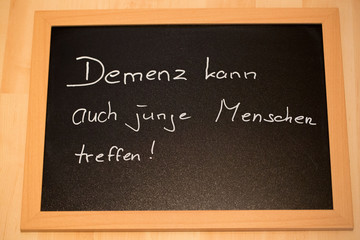 Demenz kann
auch junge Menschen
treffen!